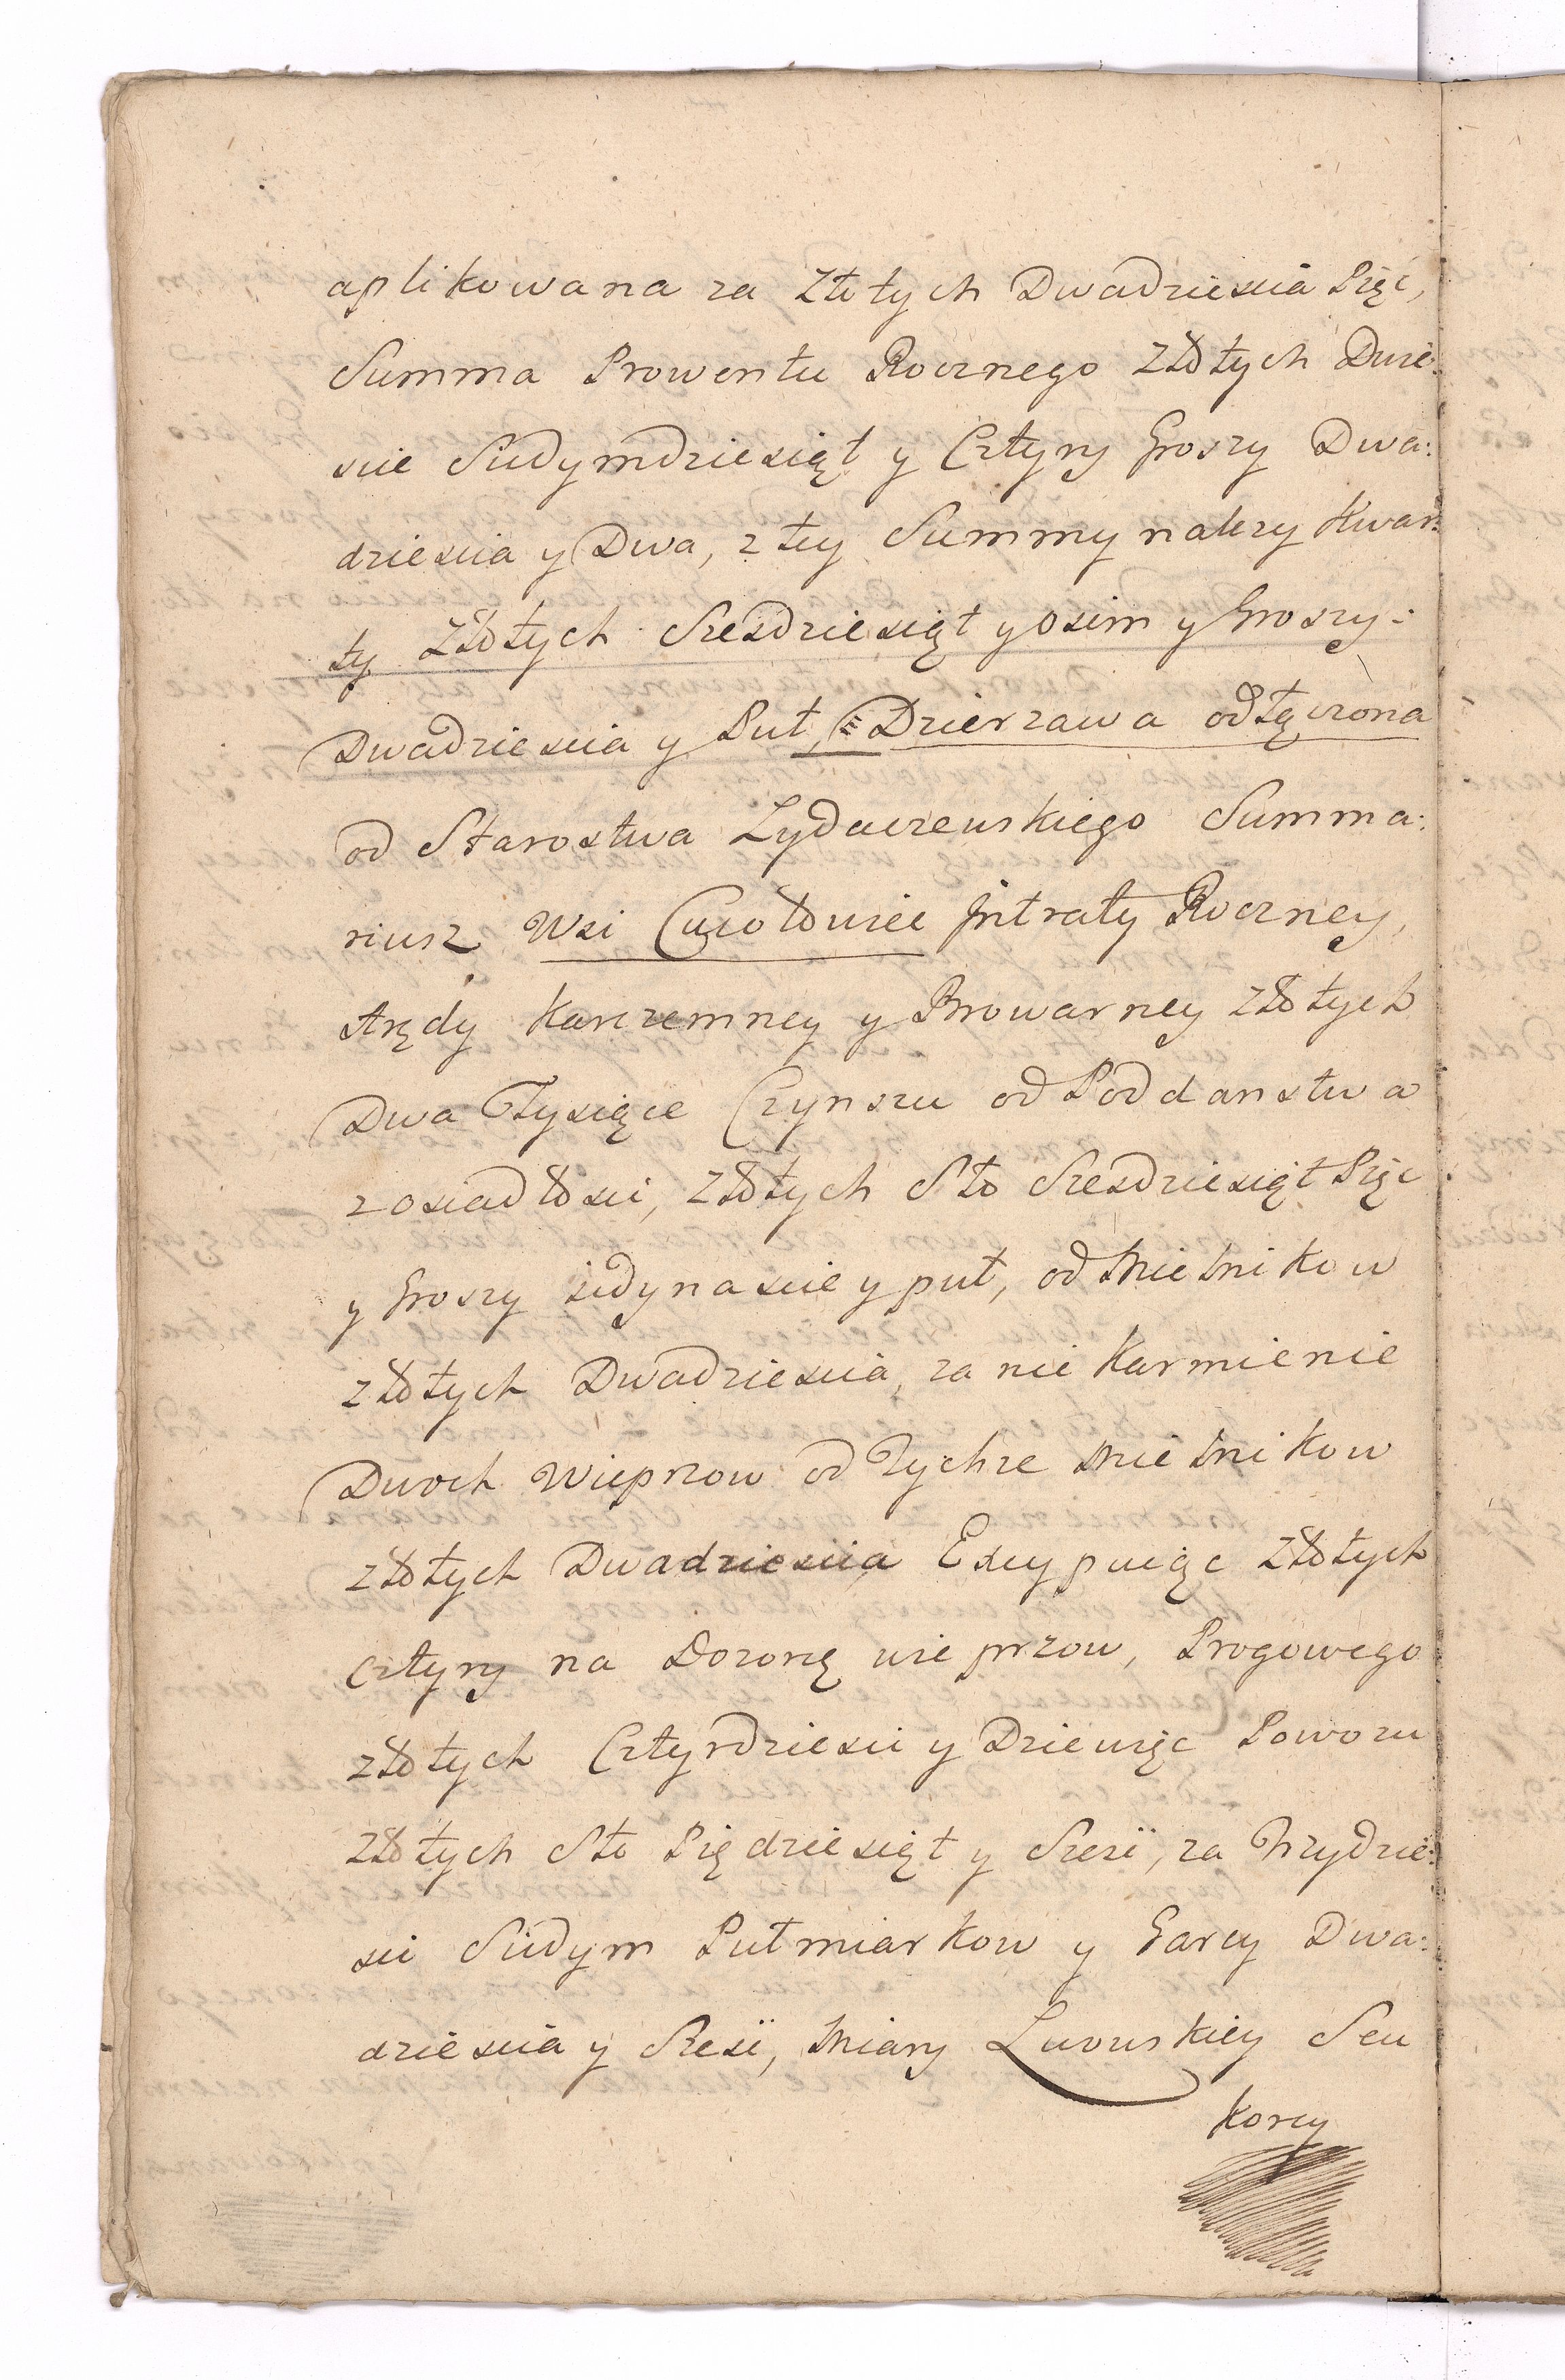 aplikowana za Złotych Dwadziescia Pięc,
Summa Prowentu Rocznego Złotych Dwie:
scie Siedymdziesiąt y Cztyry Groszy Dwa:
dziescia y Dwa, z tey Summy nalezy Kwar:
ty Złotych Szesdziesiąt y Osim y Groszy:
Dwadziescia y Puł, Dzierzawa odłączona
od Starostwa Zydaczewskiego Summa:
riusz Wsi Intraty Roczney,
Arędy Karczemney y Browarney Złotych
Dwa Tysiące Czynszu od Poddanstwa
z osiadłosci, Złotych Sto Szesdziesiąt Pięc
y Groszy iedynascie y puł, od Mielnikow
złotych Dwadziescia, za nie Karmienie
Dwoch Wieprzow od Tychze Mielnikow
złotych Dwadziescia Excypuiąc Złotych
cztyry na Dozorę wieprzow, Progowego
złotych Cztyrdziesci y Dziewięc Powozu
Złotych Sto Piędziesiąt y Szesć, za Trzydzie:
sci Siedym Pułmiarkow y Garcy Dwa:
dziescia y Szesć, Miary Lwowskiey Seu
Korcy